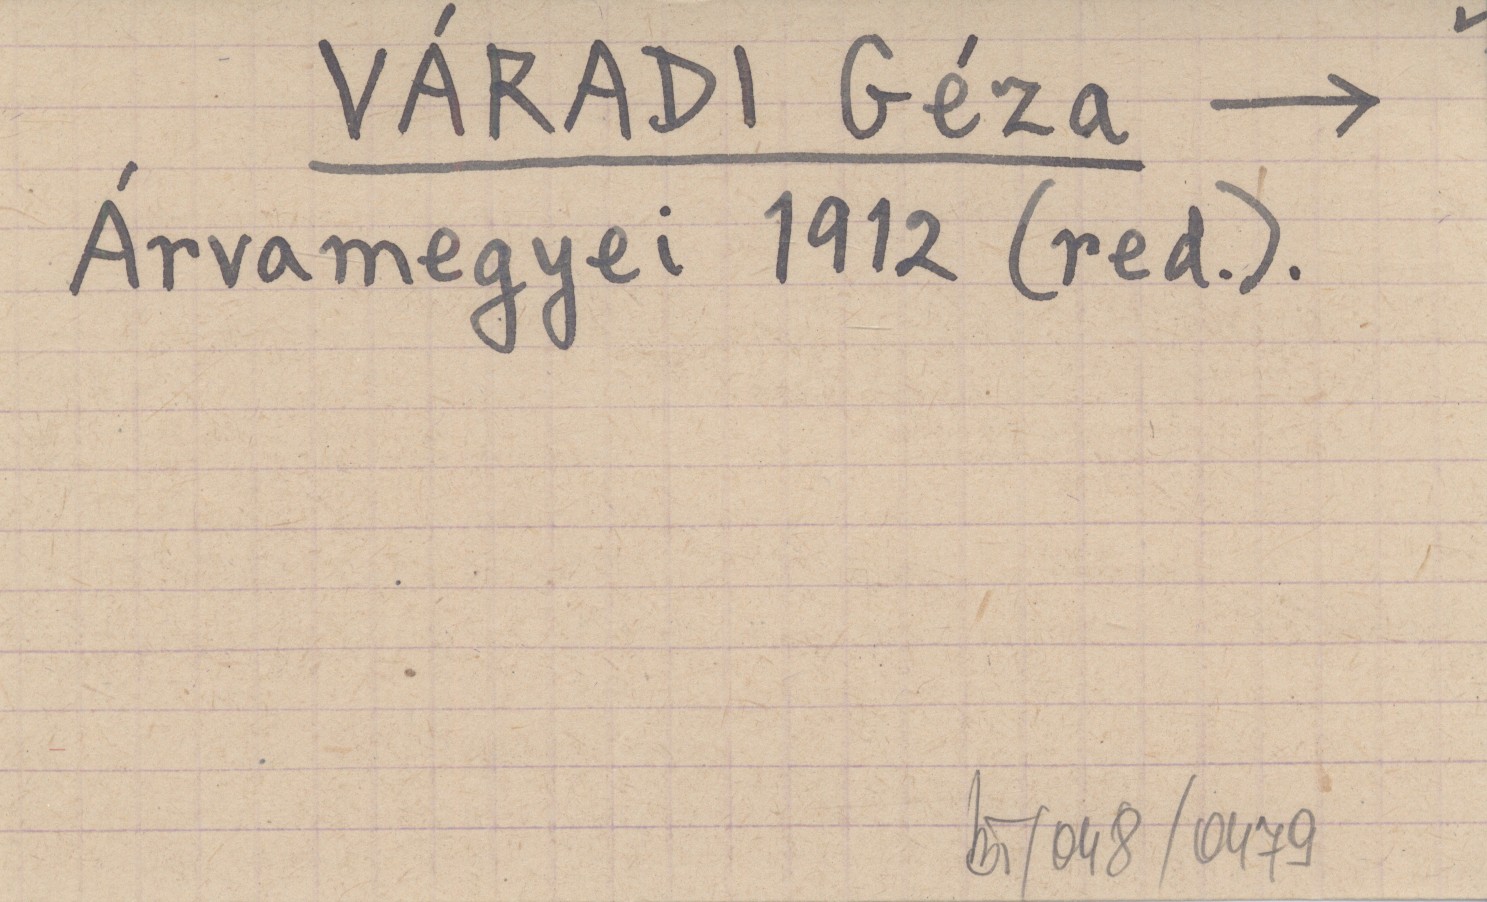 VÁRADI Géza →
Árvamegyei 1912 (red.).
/048/0479